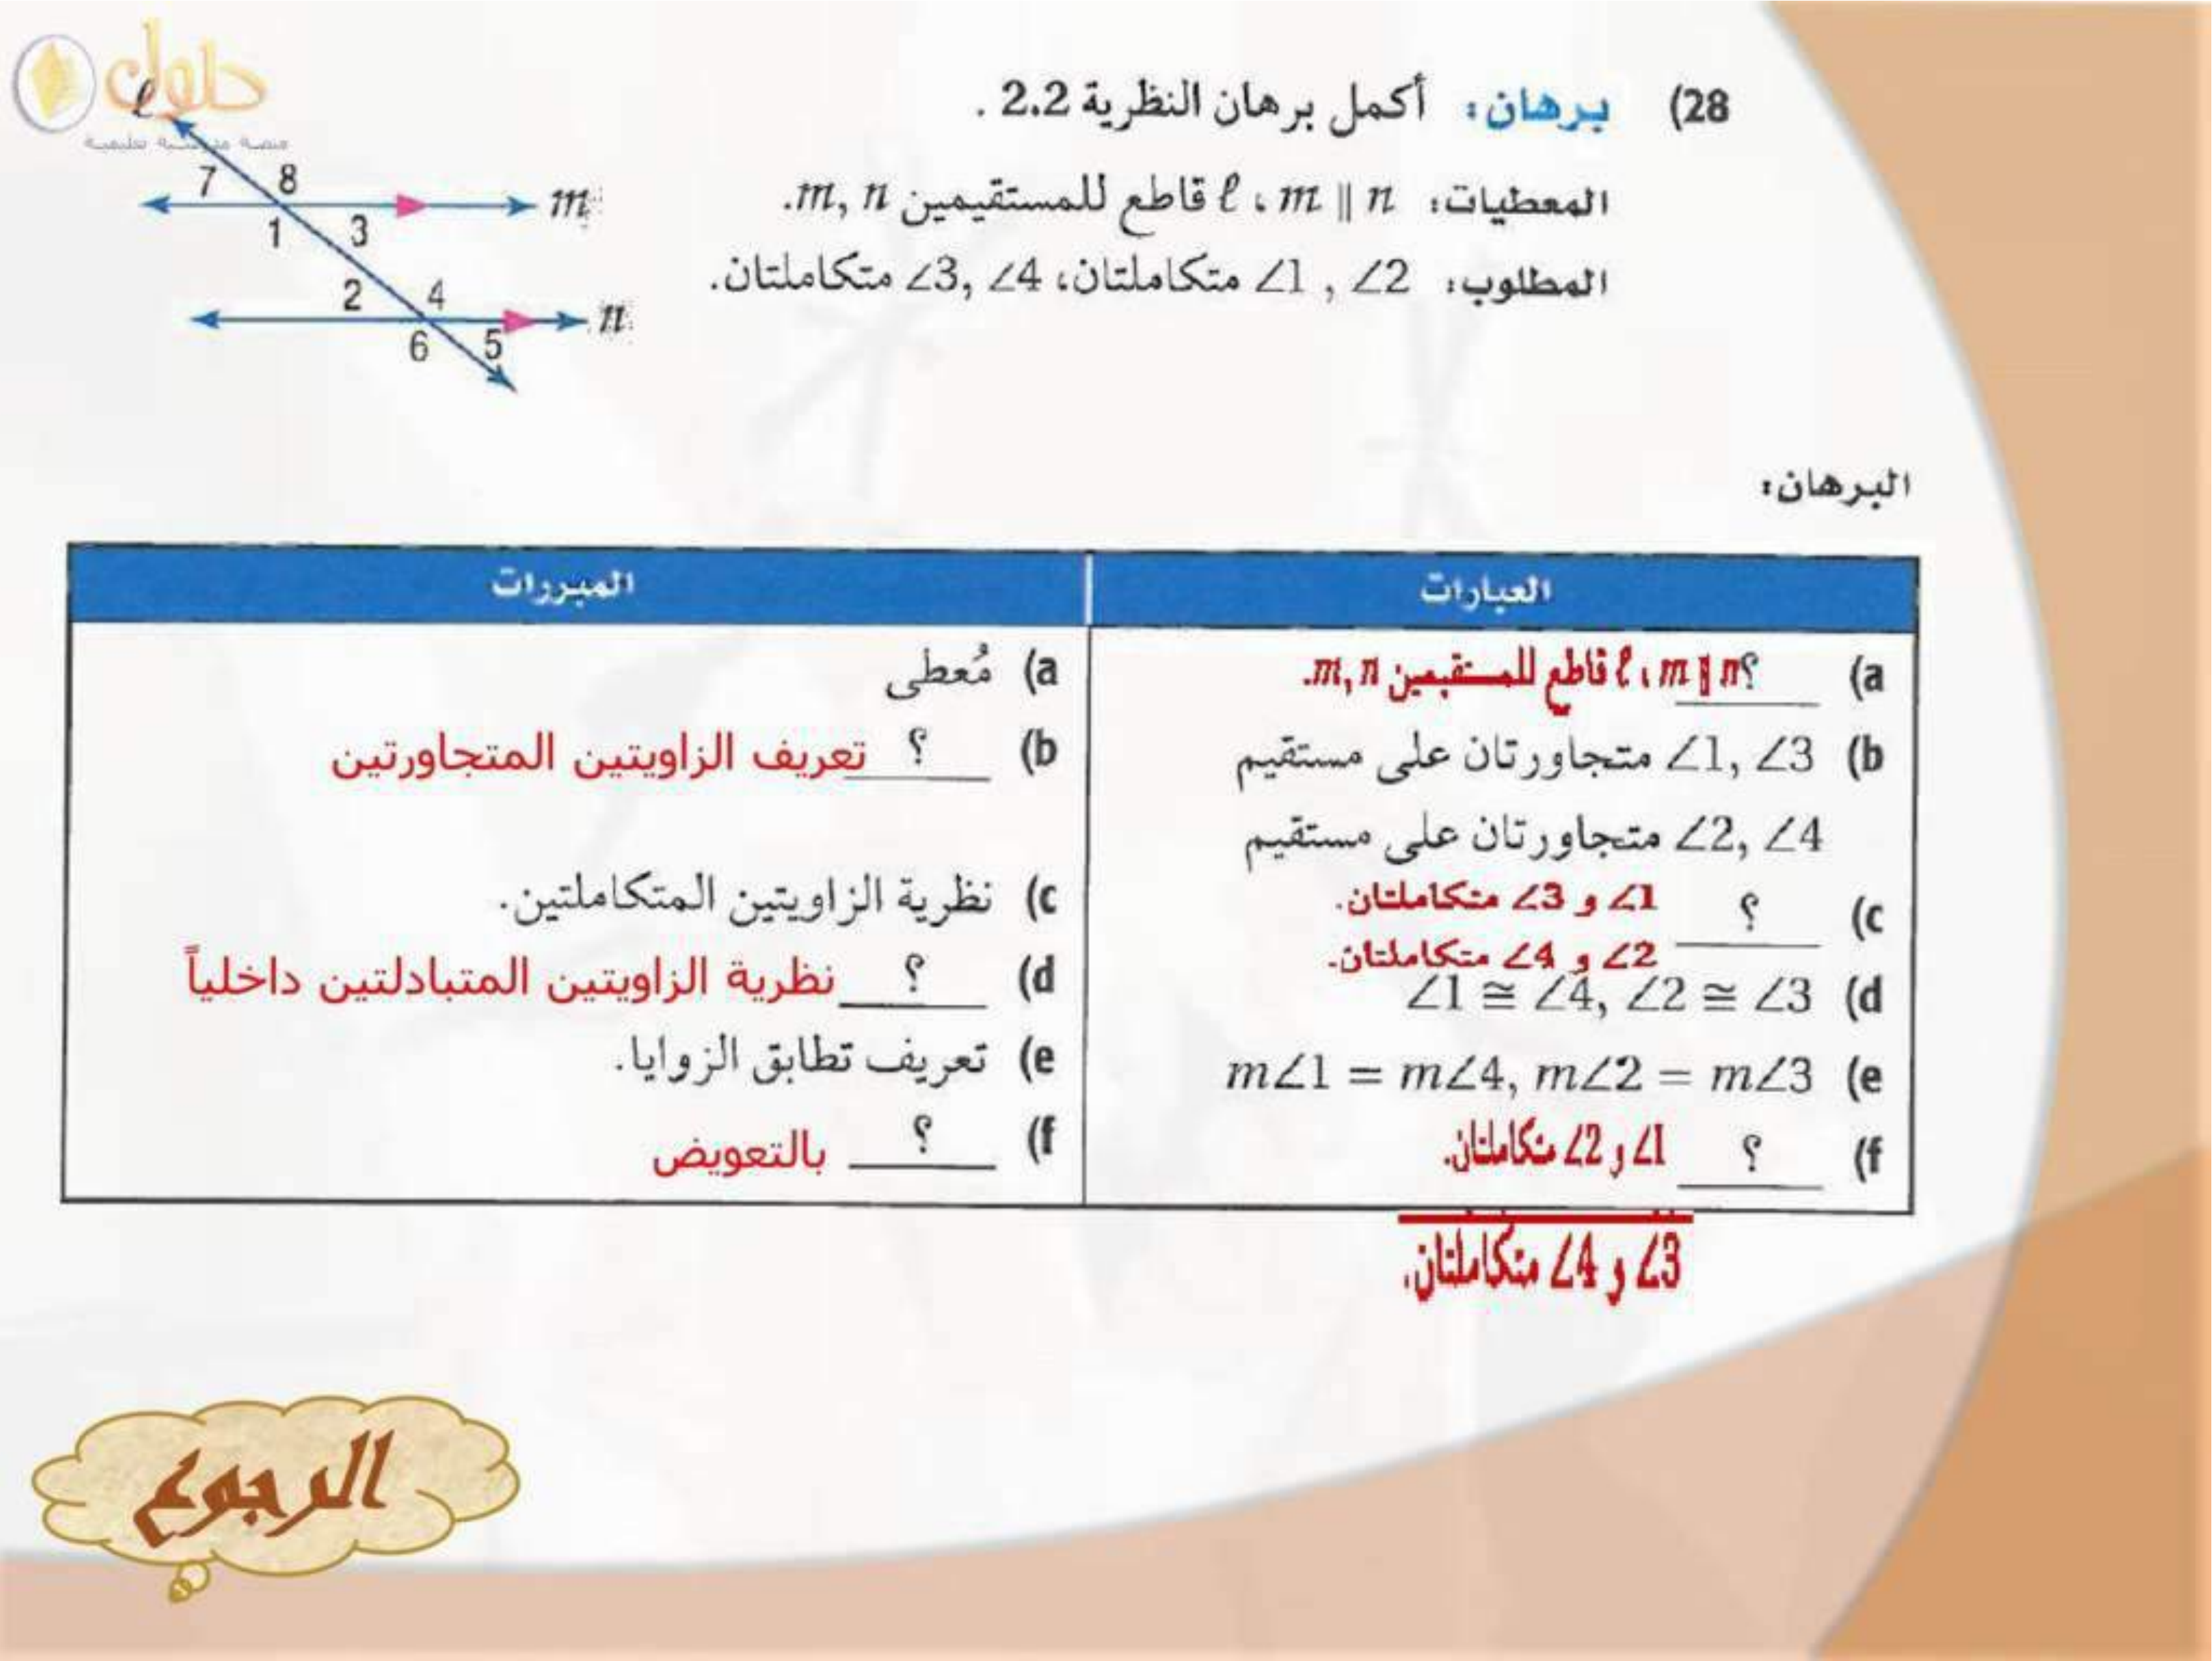 حلول
منصة مدرسية تعليمية
28) برهان: أكمل برهان النظرية 2.2 .
المعطيات: m ∥ n ، ℓ قاطع للمستقيمين m, n.
المطلوب: ∠1 , ∠2 متكاملتان، ∠3, ∠4 متكاملتان.
ℓ
7 8
m
1 3
2 4
n
6 5
البرهان:
العبارات
المبررات
a) ؟ m ∥ n ، ℓ قاطع للمستقيمين m, n.
a) مُعطى
b) ∠1, ∠3 متجاورتان على مستقيم
∠2, ∠4 متجاورتان على مستقيم
b) ؟ تعريف الزاويتين المتجاورتين
c) ؟ ∠1 و ∠3 متكاملتان.
∠2 و ∠4 متكاملتان.
c) نظرية الزاويتين المتكاملتين.
d) ∠1 ≅ ∠4, ∠2 ≅ ∠3
d) ؟ نظرية الزاويتين المتبادلتين داخلياً
e) m∠1 = m∠4, m∠2 = m∠3
e) تعريف تطابق الزوايا.
f) ؟ ∠1 و ∠2 متكاملتان.
∠3 و ∠4 متكاملتان.
f) ؟ بالتعويض
الرجوع